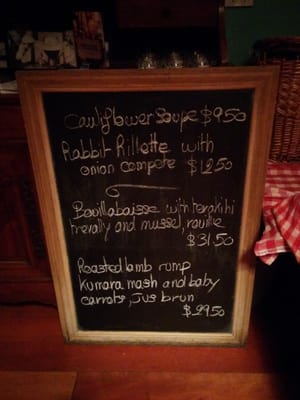 Cauliflower Soupe $9.50
Rabbit Rillette with
onion compote $12.50
Bouillabaisse with terakihi
trevally and mussel, rouille
$31.50
Roasted lamb rump
Kumara mash and baby
carrots, Jus brun
$29.50